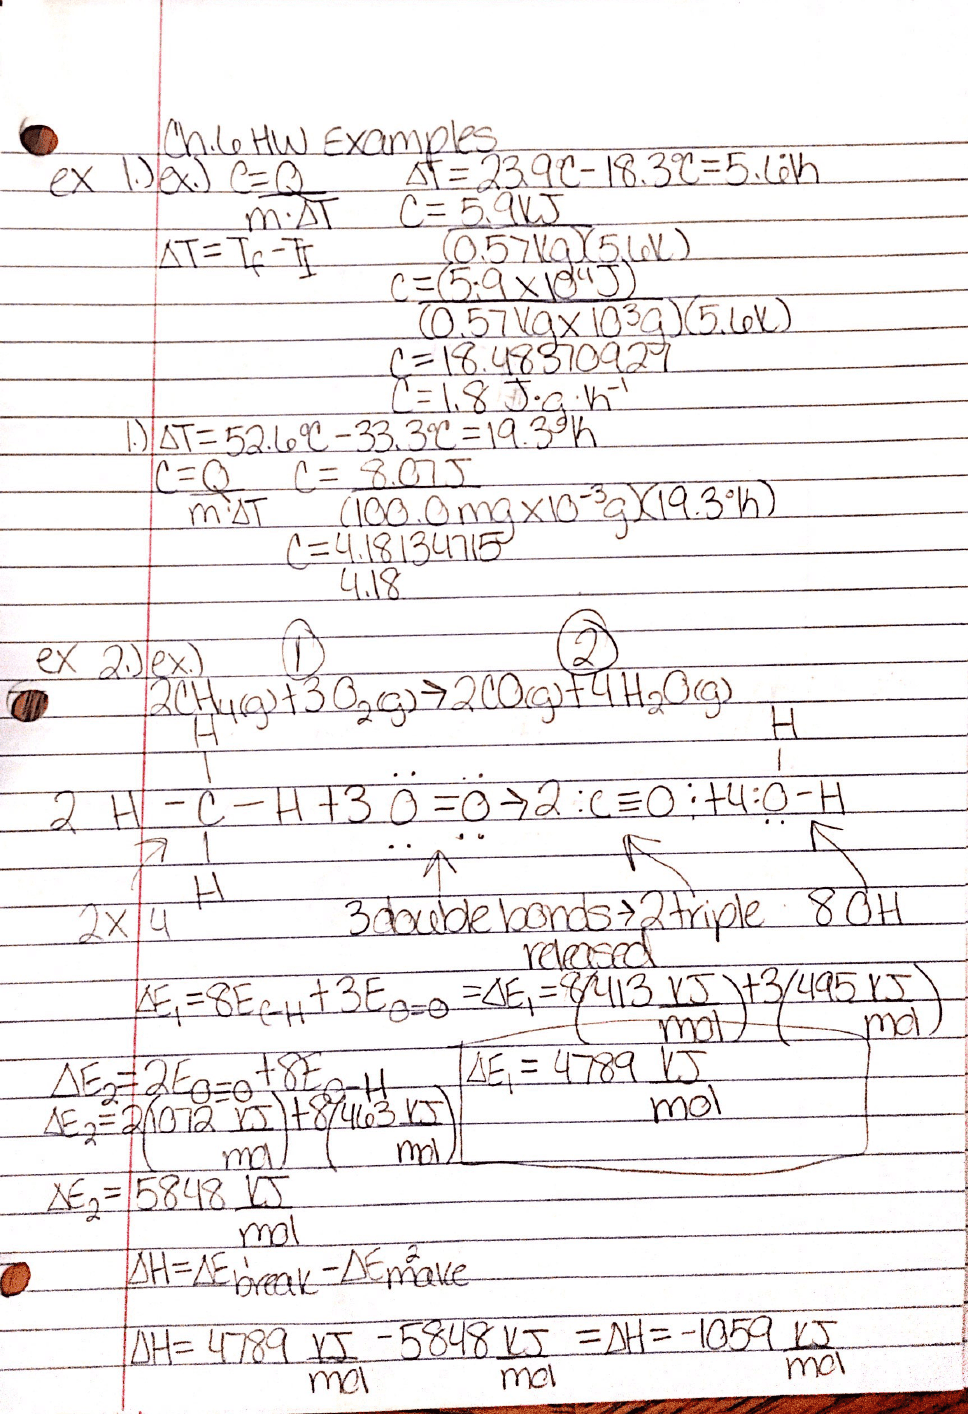 Ch.6 HW Examples
ex 1.) ex.) C=Q/m·ΔT ΔT=23.9°C-18.3°C=5.6°K
C=5.9kJ/(0.57kg)(5.6K)
ΔT=Tf-TI
C=(5.9×10⁴J)/(0.57kg×10³g)(5.6K)
C=18.48370927
C=1.8 J·g·K⁻¹
1.) ΔT=52.6°C-33.3°C=19.3°K
C=Q/m·ΔT C=8.07J/(100.0mg×10⁻³g)(19.3°K)
C=4.18134715
4.18
ex 2.) ex.) ① ②
2CH₄(g)+3O₂(g)→2CO(g)+4H₂O(g)
H H
2 H-C-H+3 O=O→2:C≡O:+4:O-H
H
2×4 3 double bonds→2 triple 8 OH
released
ΔE₁=8E C-H+3E O=O =ΔE₁=8(413 kJ/mol)+3(495 kJ/mol)
ΔE₂=2E O=O+8E O-H ΔE₁=4789 kJ/mol
ΔE₂=2(1072 kJ/mol)+8(463 kJ/mol)
ΔE₂=5848 kJ/mol
ΔH=ΔE break 1-ΔE make 2
ΔH=4789 kJ/mol-5848 kJ/mol=ΔH=-1059 kJ/mol